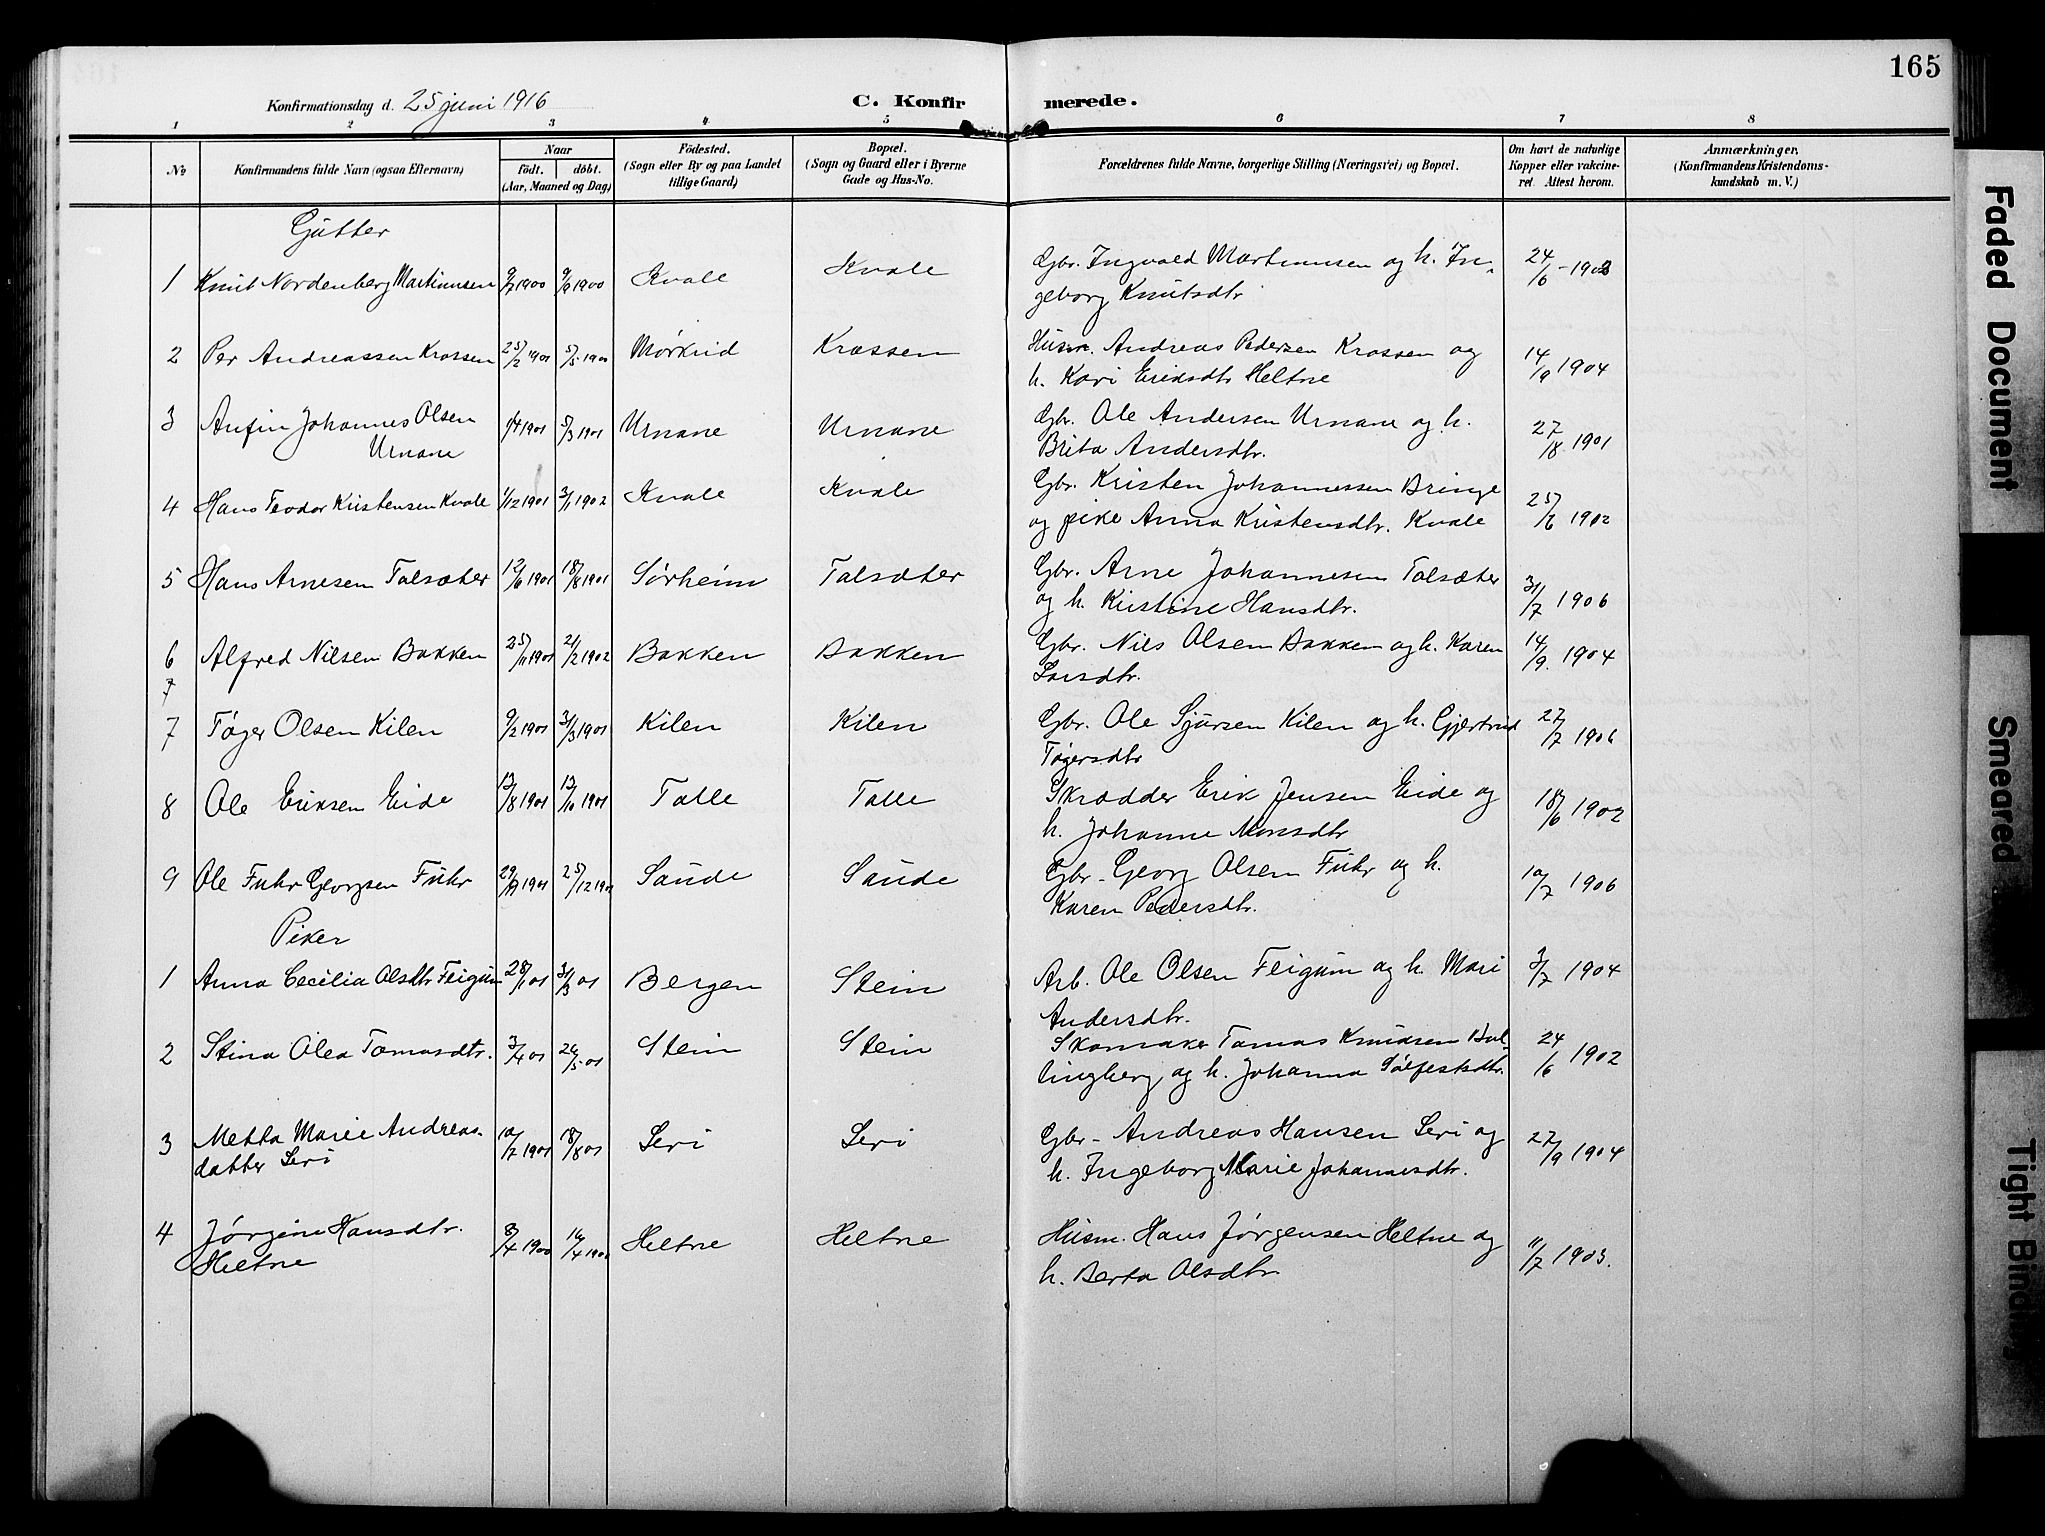 165
Konfirmationsdag d. 25 juni 1916 C. Konfirmerede.
1 2 3 4 5 6 7 8
No Konfirmandens fulde Navn (ogsaa Efternavn) Naar født. døbt. (Aar, Maaned og Dag) Fødested. (Sogn eller By og paa Landet tillige Gaard) Bopæl. (Sogn og Gaard eller i Byerne Gade og Hus-No. Forældrenes fulde Navne, borgerlige Stilling (Næringsvei) og Bopæl. Om havt de naturlige Kopper eller vakcineret. Attest herom. Anmærkninger. (Konfirmandens Kristendomskundskab m. V.)
Gutter
1 Knut Nordenberg Martinusen 9/7 1900 9/9 1900 Kvale Kvale Gbr. Ingvald Martinusen og h. In-
geborg Knutsdtr 24/6 - 1903
2 Per Andreassen Krossen 25/2 1901 5/5 1901 Mørkrid Krossen Husm. Andreas Pedersen Krossen og
h. Kari Eriksdtr Heltne 14/9 1904
3 Anfin Johannes Olsen
Urnane 1/4 1901 5/3 1901 Urnane Urnane Gbr. Ole Andersen Urnane og h.
Brita Andersdtr. 27/8 1901
4 Hans Teodor Kristensen Kvale 1/12 1901 3/1 1902 Kvale Kvale Gbr. Kristen Johannessen Bringe
og pike Anna Kristensdtr. Kvale 25/6 1902
5 Hans Arnesen Talsæter 12/6 1901 18/8 1901 Sørheim Talsæter Gbr. Arne Johannesen Talsæter
og h. Kristine Hansdtr. 31/7 1906
6 Alfred Nilsen Bakken 25/11 1901 21/2 1902 Bakken Bakken Gbr. Nils Olsen Bakken og h. Karen
Larsdtr. 14/9. 1904
7
7 Tøger Olsen Kilen 9/2 1901 31/3 1901 Kilen Kilen Gbr. Ole Sjursen Kilen og h. Gjertrud
Tøgersdtr 27/7 1906
8 Ole Eriksen Eide 13/8 1901 13/10 1901 Talle Talle Skrædder Erik Jensen Eide og
h. Johanne Monsdtr 18/6 1902
9 Ole Fuhr Georgsen Fuhr 29/9 1901 25/12 190 Saude Saude Gbr. Georg Olsen Fuhr og h.
Karen Pedersdtr. 10/7 1906
Piker
1 Anna Cecilia Olsdtr Feigum 28/1 01 31/3 01 Bergen Stein Arb. Ole Olsen Feigum og h. Mari
Andersdtr. 3/7 1904
2 Stina Olea Tomasdtr. 3/4 01 26/5 01 Stein Stein Skomaker Tomas Knudsen Bol-
lingberg og h. Johanna Sølfestsdtr. 24/6 1902
3 Metta Marie Andreas-
datter Leri 10/7 1901 18/8 01 Leri Leri Gbr. Andreas Hansen Leri og
h. Ingeborg Marie Johannesdtr. 27/9 1904
4 Jørgine Hansdtr.
Heltne 8/4 1900 16/4 190 Heltne Heltne Husm. Hans Jørgensen Heltne og
h. Berta Olsdtr 11/7 1903.
Faded Document
Smeared
Tight Binding